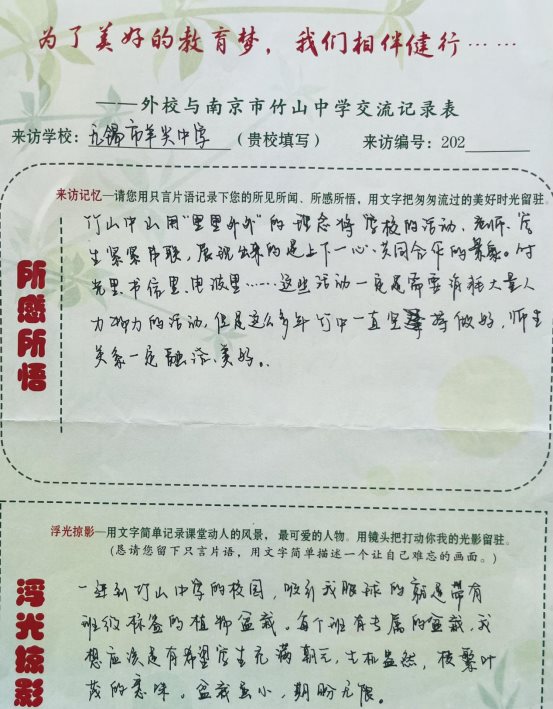 为了美好的教育梦，我们相伴健行……
——外校与南京市竹山中学交流记录表
来访学校：无锡市羊尖中学（贵校填写） 来访编号：202
来访记忆—请您用只言片语记录下您的所见所闻、所感所悟，用文字把匆匆流过的美好时光留驻。
所感所悟
竹山中山用“里里外外”的理念将学校的活动、老师、学
生紧紧串联，展现出来的是上下一心、共同合作的景象。时
光里、书信里、电波里……这些活动一定是需要消耗大量人
力物力的活动，但是这么多年竹中一直坚持做好，师生
关系一定融洽、美好。
浮光掠影—用文字简单记录课堂动人的风景，最可爱的人物。用镜头把打动你我的光影留驻。
（恳请您留下只言片语，用文字简单描述一个让自己难忘的画面。）
浮光掠影
一进到竹山中学的校园，吸引我眼球的就是带有
班级标签的植物盆栽。每个班有专属的盆栽，我
想应该是有希望学生充满朝气，生机盎然，枝繁叶
茂的意味。盆栽虽小，期盼无限。